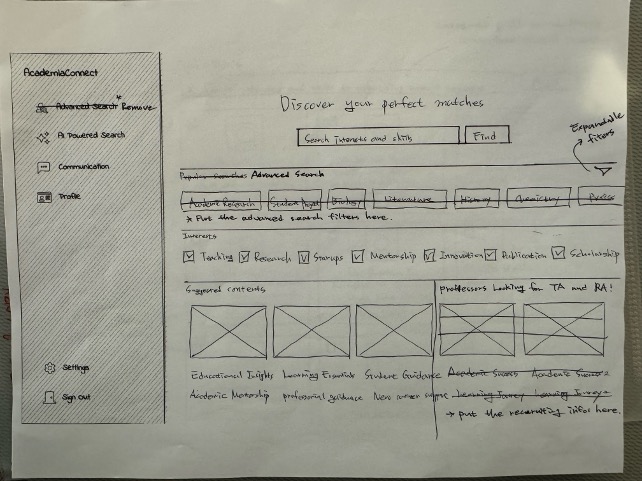 AcademiaConnect
* Advanced Search Remove
AI Powered Search
Communication
Profile
Settings
Sign Out
Discover your perfect matches
Search interests and skills
Find
Expandable filters
Popular Searches Advanced Search
Academic Research Student Project Biology Literature History Chemistry
* Put the advanced search filters here.
Interests
Teaching Research Starups Mentorship Innovation Publication Scholarship
Suggested contents
professors looking for TA and RA!
Educational Insights Learning Essentials Student Guidance Academic Success Academic Success 2
Academic Mentorship professional guidance Learning Journey Learning Journey 2
→ put the recruiting infos here.